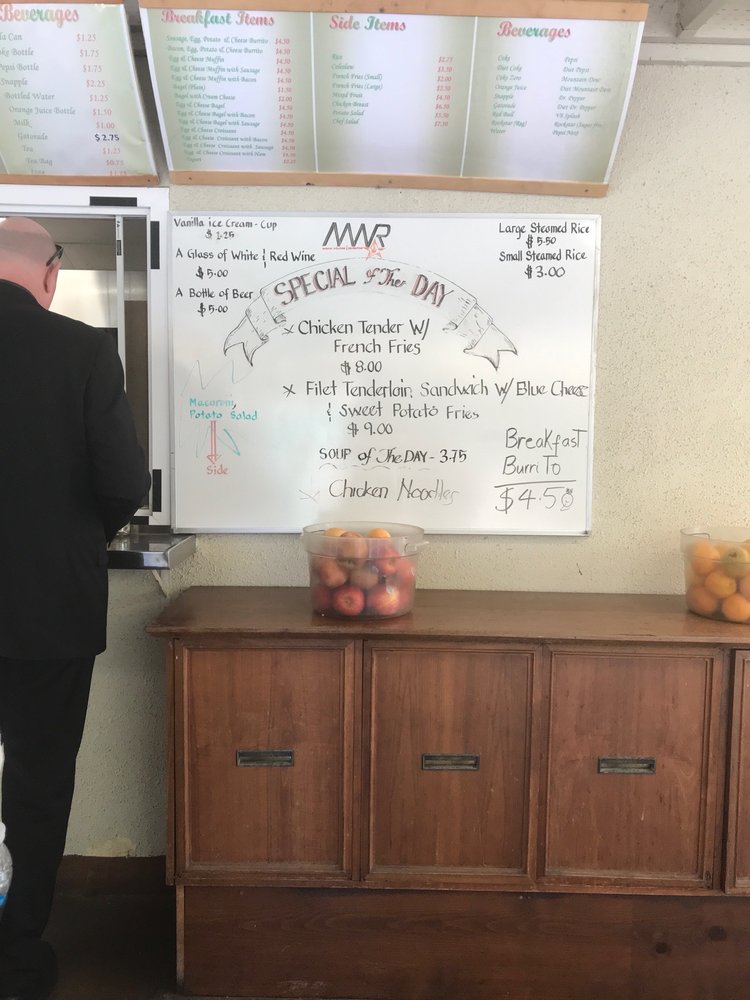 Beverages
la Can $1.25
oke Bottle $1.75
Pepsi Bottle $1.75
Snapple $2.25
Bottled Water $1.25
Orange Juice Bottle $1.50
Milk $1.00
Gatorade $2.75
Tea $1.25
Tea Bag $0.75
Breakfast Items
Sausage, Egg, Potato & Cheese Burrito $4.50
Bacon, Egg, Potato & Cheese Burrito $4.50
Egg & Cheese Muffin
Egg & Cheese Muffin with Sausage
Egg & Cheese Muffin with Bacon
Bagel (Plain)
Bagel with Cream Cheese
Egg & Cheese Bagel
Egg & Cheese Bagel with Bacon
Egg & Cheese Bagel with Sausage
Egg & Cheese Croissant
Egg & Cheese Croissant with Bacon
Egg & Cheese Croissant with Sausage
Egg & Cheese Croissant with Ham
Yogurt
Side Items
Rice $2.75
Coleslaw
French Fries (Small) $2.00
French Fries (Large)
Mixed Fruit
Chicken Breast
Potato Salad
Chef Salad
Beverages
Coke Pepsi
Diet Coke Diet Pepsi
Coke Zero Mountain Dew
Orange Juice Diet Mountain Dew
Snapple Dr. Pepper
Gatorade Diet Dr. Pepper
Red Bull V8 Splash
Rockstar (Reg) Rockstar (Sugar free)
Water
Vanilla ice Cream - Cup
$ 1.25
A Glass of White & Red Wine
$5.00
A Bottle of Beer
$5.00
MWR
Large Steamed Rice
$5.50
Small Steamed Rice
$3.00
SPECIAL of The DAY
x Chicken Tender W/
French Fries
$8.00
x Filet Tenderloin Sandwich W/ Blue Cheese
& Sweet Potato Fries
$9.00
Macaroni,
Potato Salad
Side
SOUP of The DAY - 3.75
x Chicken Noodles
Breakfast
BurriTo
$4.50